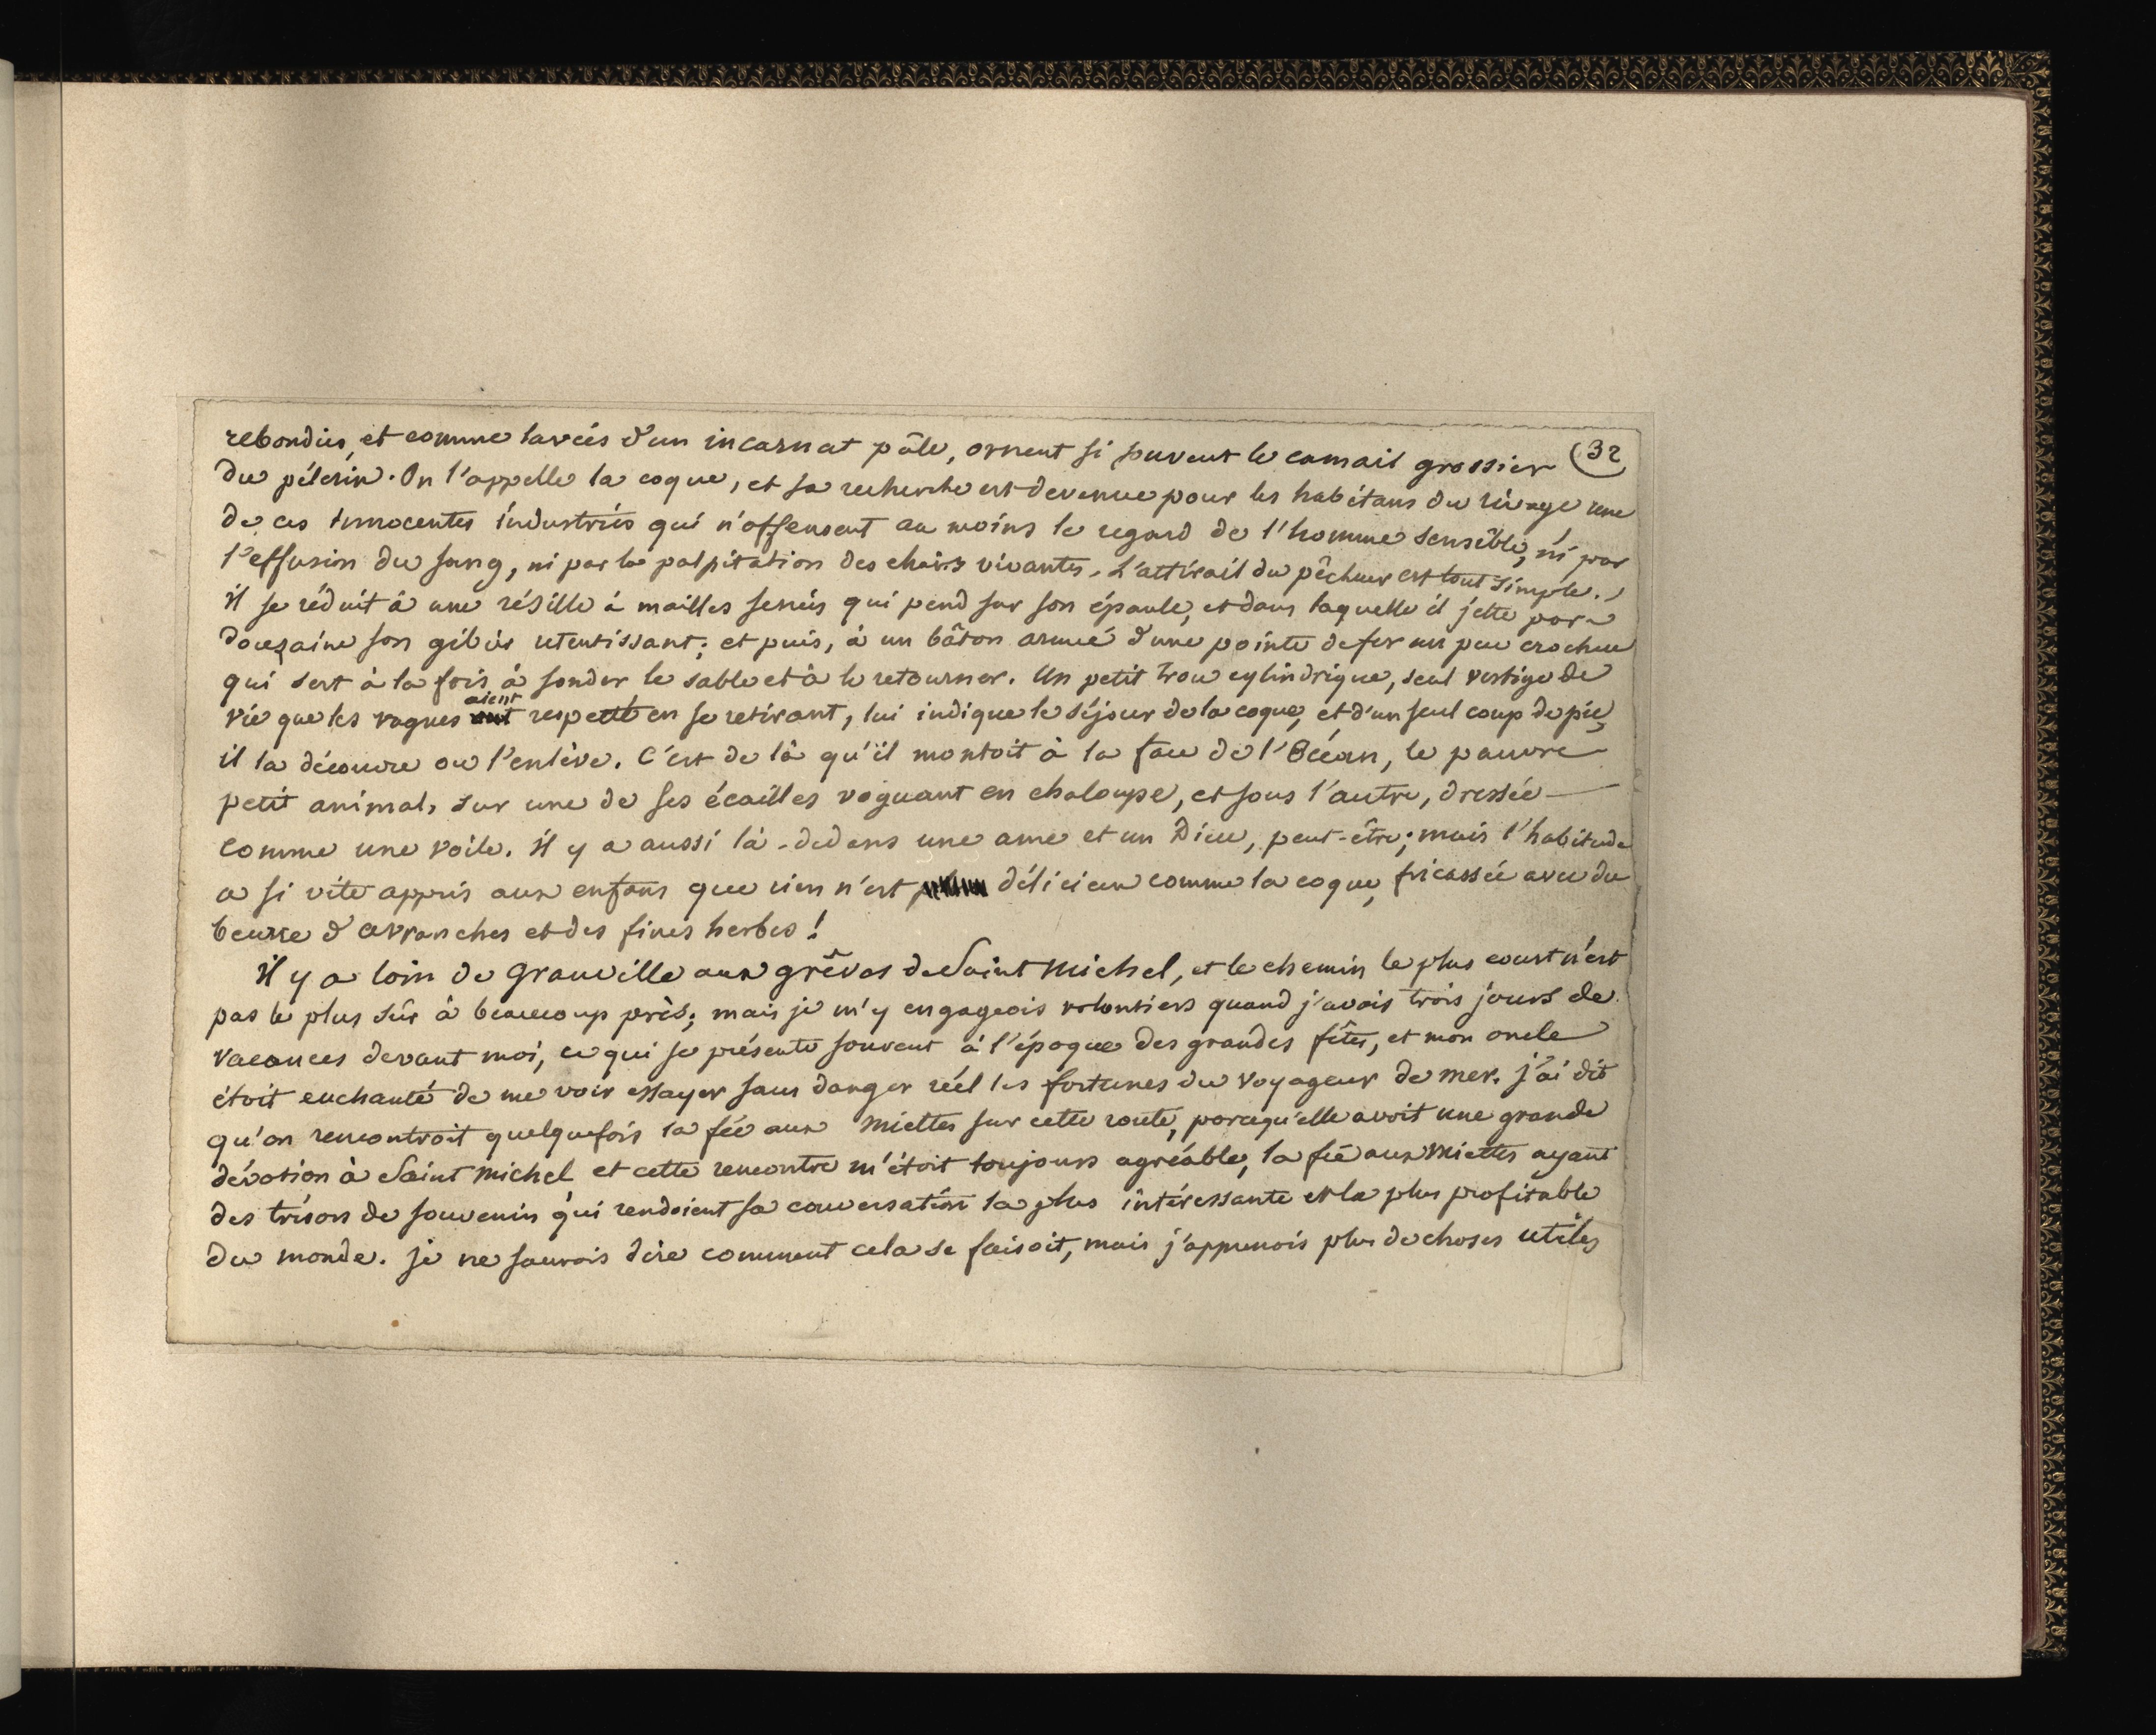 rebondies, et comme lavées d'un incarnat pâle, ornent si souvent le camail grossier (32
du pélerin. On l'appelle la coque, et sa recherche est devenue pour les habitans du rivage une
de ces innocentes industries qui n'offensent au moins le regard de l'homme sensible, ni par
l'effusion du sang, ni par la palpitation des chairs vivantes. L'attirail du pêcheur est tout simple.
Il se réduit à une résille à mailles serrées qui pend sur son épaule, et dans laquelle il jette par
douzaine son gibier retentissant; et puis, à un bâton armé d'une pointe de fer un peu crochue
qui sert à la fois à sonder le sable et à le retourner. Un petit trou cylindrique, seul vestige de
aient
vie que les vagues ont respecté en se retirant, lui indique le séjour de la coque, et d'un seul coup de pic,
il la découvre ou l'enlève. C'est de là qu'il montoit à la face de l'Océan, le pauvre
petit animal, sur une de ses écailles voguant en chaloupe, et sous l'autre, dressée
comme une voile. Il y a aussi là-dedans une ame et un Dieu, peut-être; mais l'habitude
a si vite appris aux enfans que rien n'est délicieux comme la coque, fricassée avec du
beurre d'avranches et des fines herbes!
Il y a loin de Granville aux grêves de Saint Michel, et le chemin le plus court n'est
pas le plus sûr à beaucoup près; mais je m'y engageois volontiers quand j'avois trois jours de
vacances devant moi, ce qui se présente souvent à l'époque des grandes fêtes, et mon oncle
étoit enchanté de me voir essayer sans danger réel les fortunes du voyageur de mer. j'ai dit
qu'on rencontroit quelquefois la fée aux Miettes sur cette route, parcequ'elle avoit une grande
dévotion à Saint Michel et cette rencontre m'étoit toujours agréable, la fée aux Miettes ayant
des trésors de souvenirs qui rendoient sa conversation la plus intéressante et la plus profitable
du monde. je ne saurois dire comment cela se faisoit, mais j'apprenois plus de choses utiles